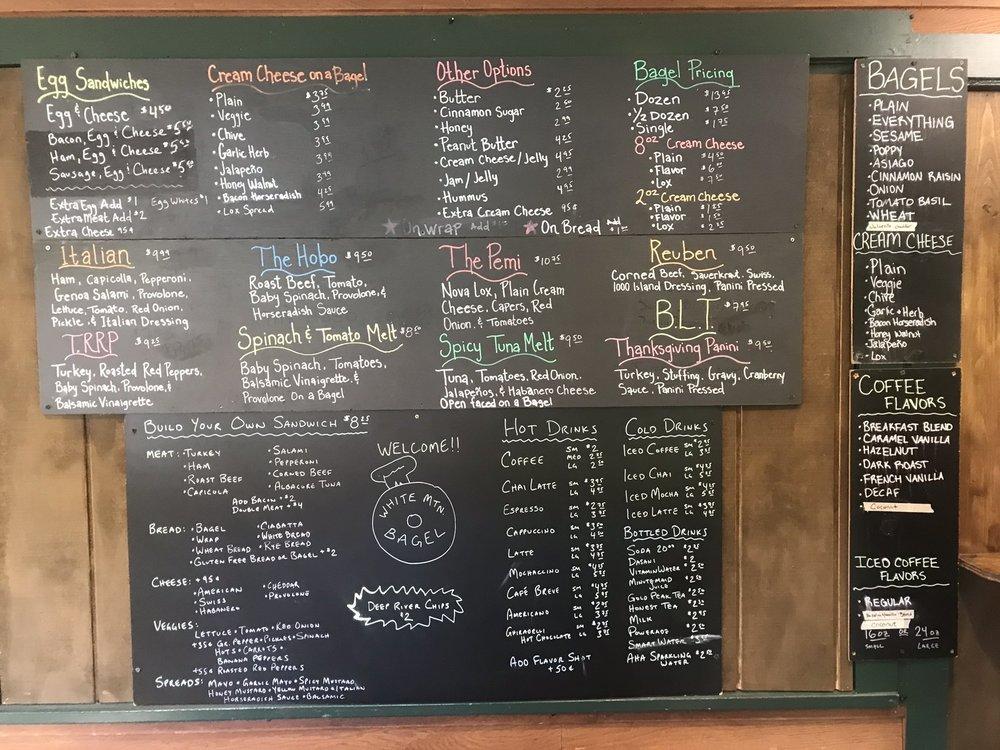 Egg Sandwiches
Egg & Cheese $4.50
Bacon, Egg & Cheese $5.50
Ham, Egg & Cheese $5.50
Sausage, Egg & Cheese $5.50
Extra Egg Add $1 Egg Whites $1
Extra Meat Add $2
Extra Cheese 95¢
Cream Cheese on a Bagel
• Plain $3.75
• Veggie 3.99
• Chive 3.99
• Garlic Herb 3.99
• Jalapeño 3.99
• Honey Walnut
• Bacon Horseradish 4.25
• Lox Spread 5.99
Other Options
• Butter
• Cinnamon Sugar
• Honey 2.99
• Peanut Butter 4.25
• Cream Cheese/Jelly 4.95
• Jam/Jelly 2.99
• Hummus 4.95
• Extra Cream Cheese 95¢
On Wrap Add
On Bread Add
Bagel Pricing
• Dozen $13.95
• 1/2 Dozen $7.50
• Single $1.75
8oz Cream Cheese
• Plain
• Flavor
• Lox
2oz Cream cheese
• Plain
• Flavor
• Lox
Italian $9.99
Ham, Capicolla, Pepperoni,
Genoa Salami, Provolone,
Lettuce, Tomato, Red Onion,
Pickle & Italian Dressing
T.R.P $9.25
Turkey, Roasted Red Peppers,
Baby Spinach, Provolone, &
Balsamic Vinaigrette
The Hobo $9.50
Roast Beef, Tomato,
Baby Spinach, Provolone, &
Horseradish Sauce
Spinach & Tomato Melt $8.50
Baby Spinach, Tomatoes,
Balsamic Vinaigrette, &
Provolone On a Bagel
The Pemi $10.75
Nova Lox, Plain Cream
Cheese, Capers, Red
Onion, & Tomatoes
Spicy Tuna Melt $9.50
Tuna, Tomatoes, Red Onion,
Jalapeños, & Habanero Cheese
Open faced on a Bagel
Reuben $9.50
Corned Beef, Sauerkraut, Swiss,
1000 Island Dressing, Panini Pressed
B.L.T. $7.95
Thanksgiving Panini $9.50
Turkey, Stuffing, Gravy, Cranberry
Sauce, Panini Pressed
Build Your Own Sandwich $8.25
Meat: • Turkey
• Ham
• Roast Beef
• Capicola
• Salami
• Pepperoni
• Corned Beef
• Albacure Tuna
Add Bacon + $2
Double Meat + $4
Bread: • Bagel
• Wrap
• Wheat Bread
• Ciabatta
• White Bread
• Rye Bread
• Gluten Free Bread or Bagel + $2
Cheese: + 95¢
• American
• Swiss
• Habanero
• Cheddar
• Provolone
Veggies:
Lettuce • Tomato • Red Onion
+35¢ Gr. Pepper • Pickles • Spinach
Hots • Carrots •
Banana Peppers
+55¢ Roasted Red Peppers
Spreads: Mayo • Garlic Mayo • Spicy Mustard
Honey Mustard • Yellow Mustard • Italian
Horseradish Sauce • Balsamic
Welcome!!
White Mtn.
Bagel
Deep River Chips
$2
Hot Drinks
Coffee SM $2
MED
LG
Chai Latte SM
LG
Espresso SM
LG
Cappuccino SM
LG
Latte SM
LG
Mochaccino SM
LG
Café Breve SM
LG
Americano SM
LG
Ghirardelli SM
Hot Chocolate LG
Add Flavor Shot
+50¢
Cold Drinks
Iced Coffee SM
LG
Iced Chai SM
LG
Iced Mocha SM
LG
Iced Latte SM
LG
Bottled Drinks
Soda 20oz
Dasani $2
VitaminWater
Minutemaid
Juice
Gold Peak Tea
Honest Tea
Milk
Powerade
Smart Water
Aha Sparkling
Water
BAGELS
• PLAIN
• EVERYTHING
• SESAME
• POPPY
• ASIAGO
• CINNAMON RAISIN
• ONION
• TOMATO BASIL
• WHEAT
CREAM CHEESE
• Plain
• Veggie
• Chive
• Garlic & Herb
• Bacon Horseradish
• Honey Walnut
• Jalapeño
• Lox
COFFEE
FLAVORS
• BREAKFAST BLEND
• CARAMEL VANILLA
• HAZELNUT
• DARK ROAST
• FRENCH VANILLA
• DECAF
Coconut
ICED COFFEE
FLAVORS
• REGULAR
Coconut
16oz OR 24oz
SMALL LARGE